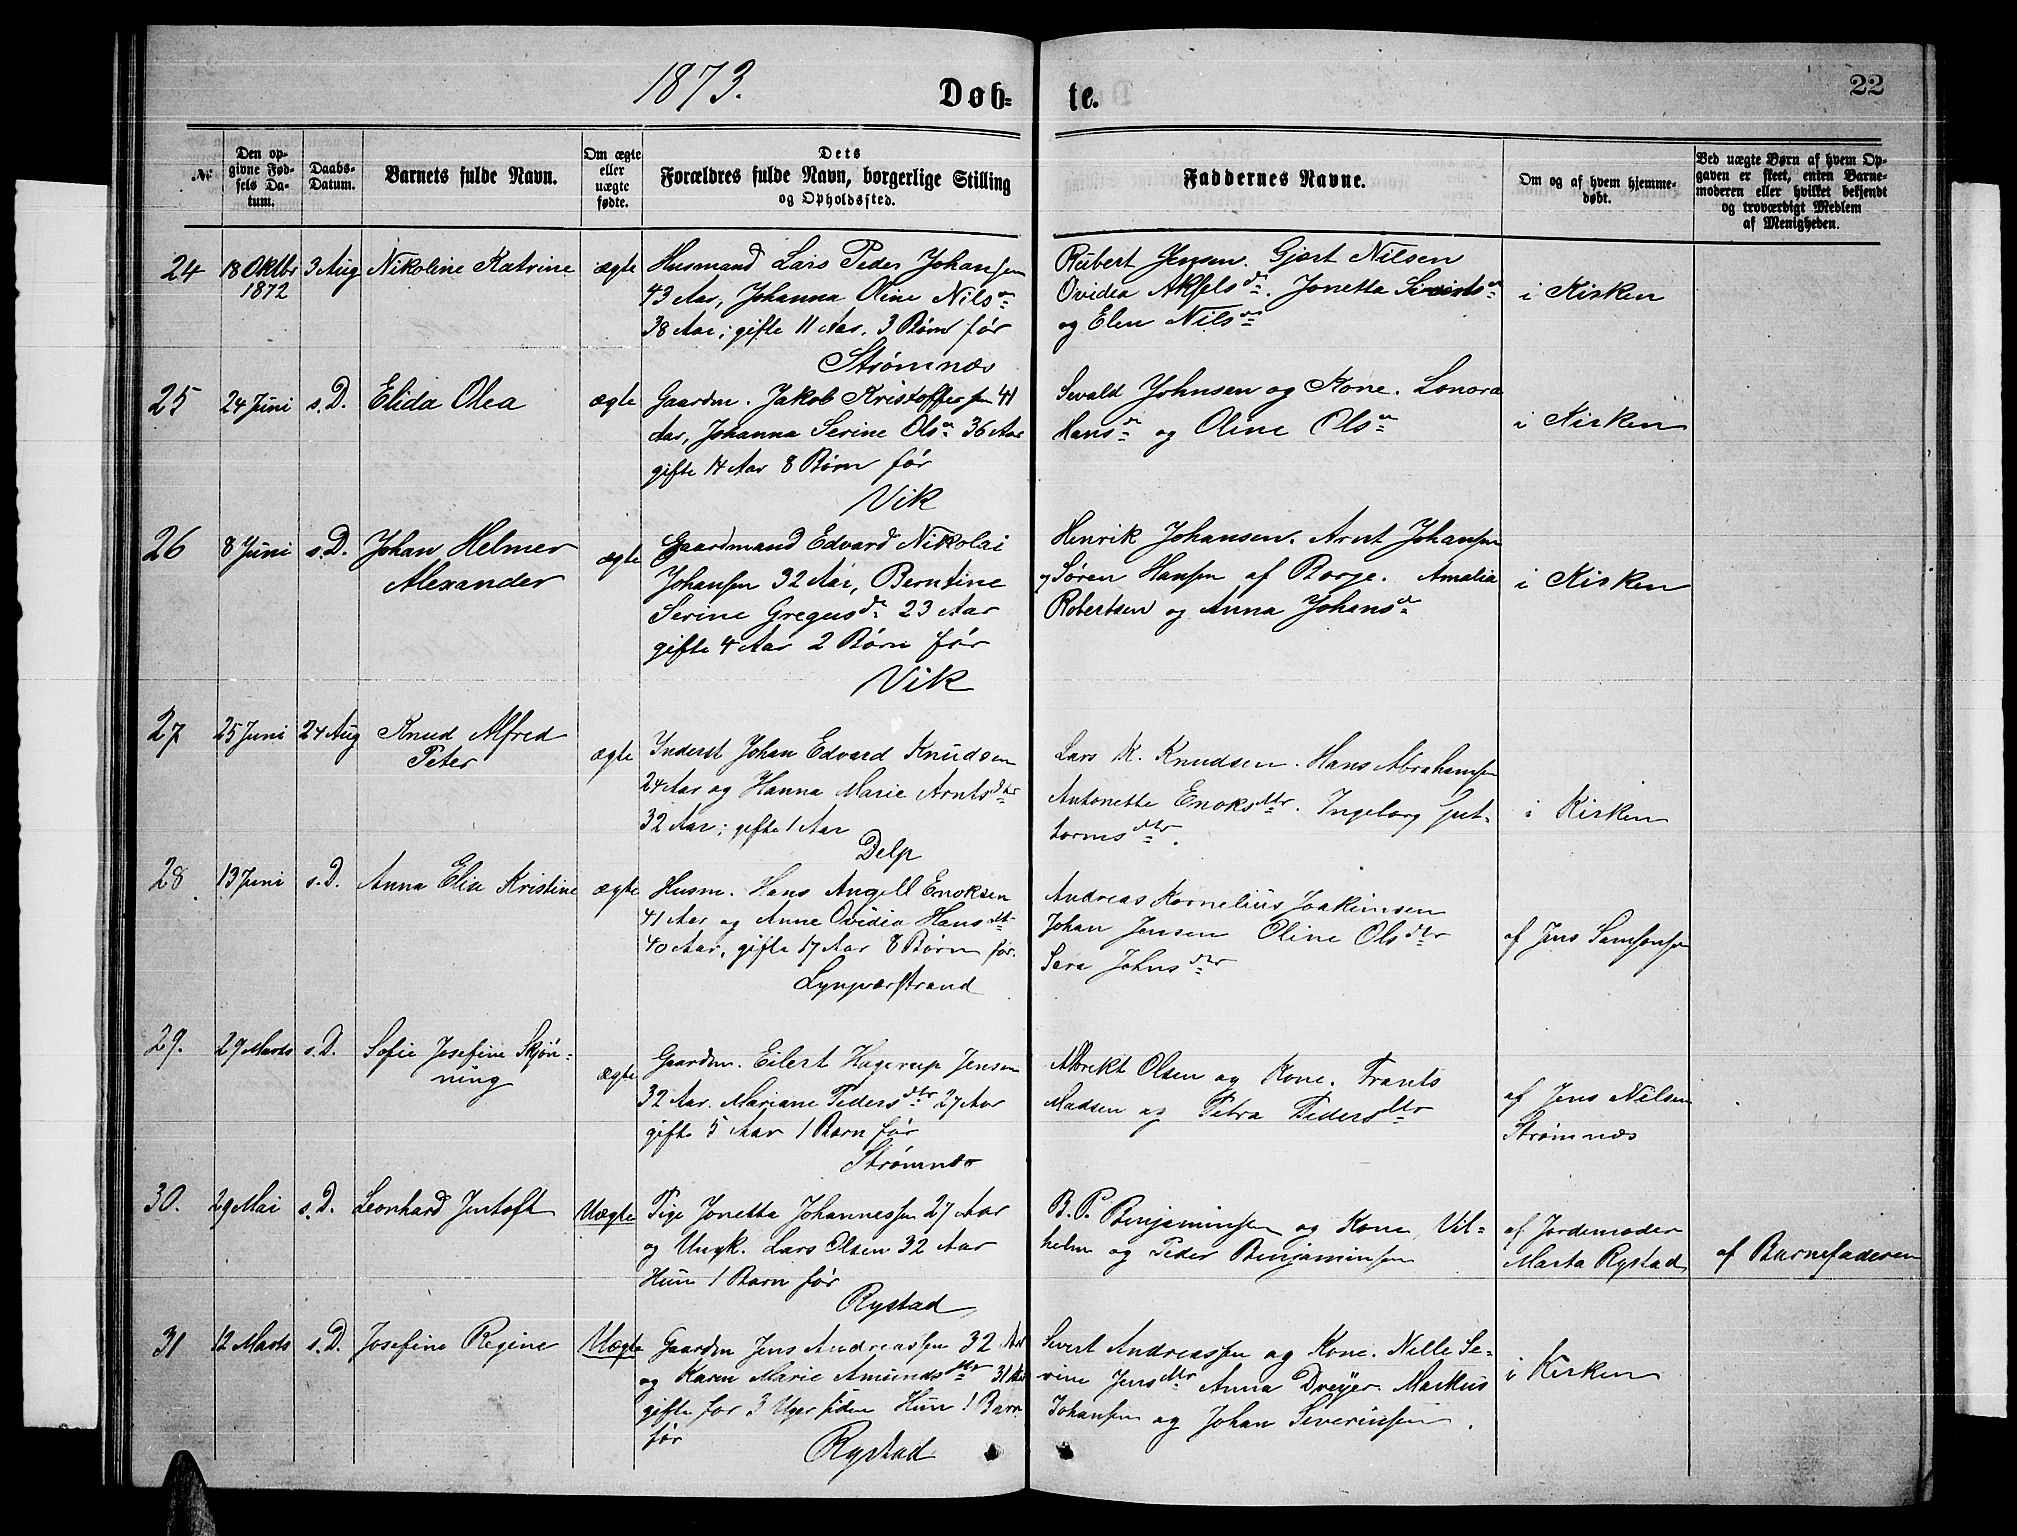 1873.
Døb-
te.
22
№
Den op-
givne Fød-
sels Da-
tum.
Daabs-
Datum.
Barnets fulde Navn.
Om ægte
eller
uægte
fødte.
Dets
Forældres fulde Navn, borgerlige Stilling
og Opholdssted.
Faddernes Navne.
Om og af hvem hjemme-
døbt.
Ved uægte Børn af hvem Op-
gaven er skeet, enten Barne-
moderen eller hvilket bekjendt
og troværdigt Medlem
af Menigheden.
24
18 Oktbr
1872
3 Aug
Nikoline Katrine
ægte
Husmand Lars Peder Johansen
43 Aar, Johanna Oline Nilsdr
38 Aar; gifte 11 Aar. 3 Børn før
Strømnæs
Rubert Jensen. Gjært Nilsen
Ovidia Akselsdr. Jonetta Sivertsdr
og Elen Nilsdr
i Kirken
25
24 Juni
s.D.
Elida Olea
ægte
Gaardm. Jakob Kristoffersen 41
Aar, Johanna Serine Olsdr 36 Aar
gifte 14 Aar 8 Børn før
Vik
Sevald Johnsen og Kone. Lonora
Hansdr og Oline Olsdr
i Kirken
26
8 Juni
s.D.
Johan Helmer
Alexander
ægte
Gaardmand Edvard Nikolai
Johansen 32 Aar, Berntine
Serine Gregusdr 23 Aar
gifte 4 Aar 2 Børn før
Vik
Henrik Johansen. Arnt Johansen
Søren Hansen af Borge. Amalia
Robertsen og Anna Johansdr
i Kirken
27
25 Juni
24 Aug
Knud Alfred
Peter
ægte
Inderst Johan Edvard Knudsen
24 Aar og Hanna Marie Arntsdtr
32 Aar; gifte 1 Aar
Delp
Lars K. Knudsen. Hans Abrahamsen
Antonette Enoksdtr. Ingeborg Gut-
tormsdtr.
i Kirken
28
13 Juni
s.D.
Anna Elise Kristine
ægte
Husm. Hans Angell Enoksen
41 Aar og Anne Ovidia Hansdtr
40 Aar, gifte 17 Aar 8 Børn før.
Lyngværstrand
Andreas Kornelius Joakimsen
Johan Jensen Oline Olsdtr
Sera Johnsdtr
af Jens Samsonsen
29.
29 Marts
s.D.
Sofie Josefine Skjøn-
ning
ægte
Gaardm. Eilert Hagerup Jensen
32 Aar. Mariane Pedersdtr 27 Aar
gifte 5 Aar 1 Barn før
Strømnæs
Albrekt Olsen og Kone. Frants
Madsen og Petra Pedersdtr
af Jens Nilsen
Strømnæs
30.
29 Mai
s.D.
Leonhard Jentoft
Uægte
Pige Jonetta Johannessen 27 Aar
og Ungk. Lars Olsen 32 Aar
Hun 1 Barn før
Rystad
B. P. Benjaminsen og Kone, Vil-
helm og Peder Benjaminsen
af Jordemoder
Marta Rystad
af Barnefaderen
31
12 Marts
s.D.
Josefine Regine
Uægte
Gaardm Jens Andreassen 32 Aar
og Karen Marie Amundsdtr 31 Aar
gifte for 3 Uger siden Hun 1 Barn
før
Rystad
Sivert Andreassen og Kone. Nille Se-
rine Jensdtr Anna Dreyer. Markus
Johansen og Johan Severinsen.
i Kirken